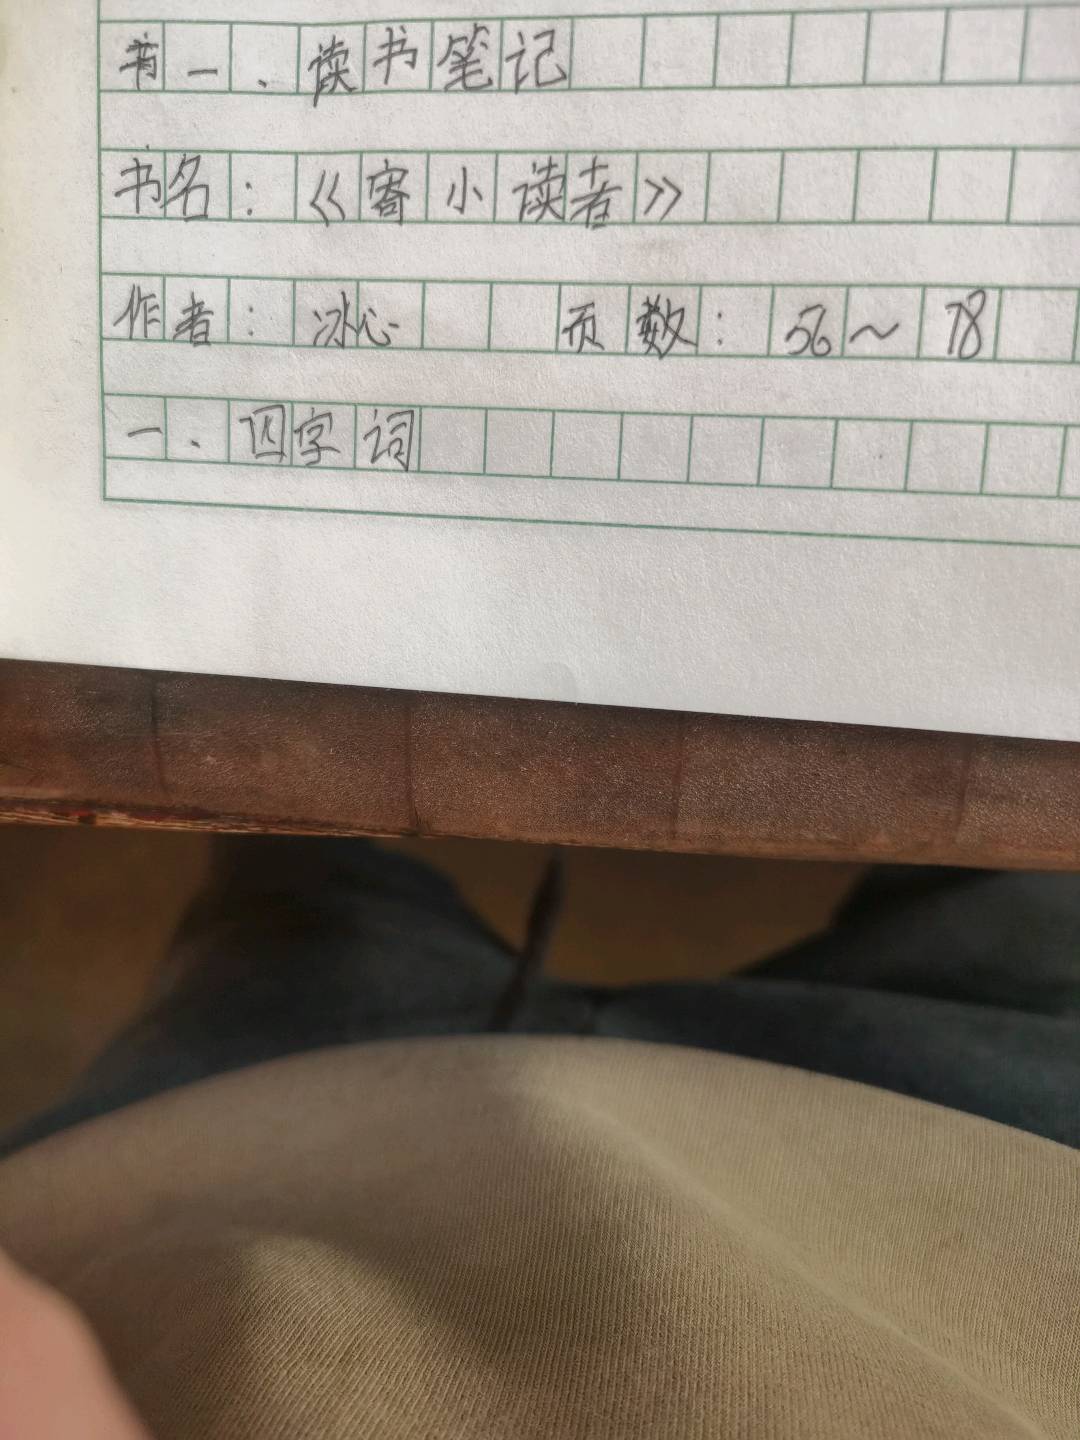 一、读书笔记
书名：《寄小读者》
作者：冰心 页数：56～78
一、四字词